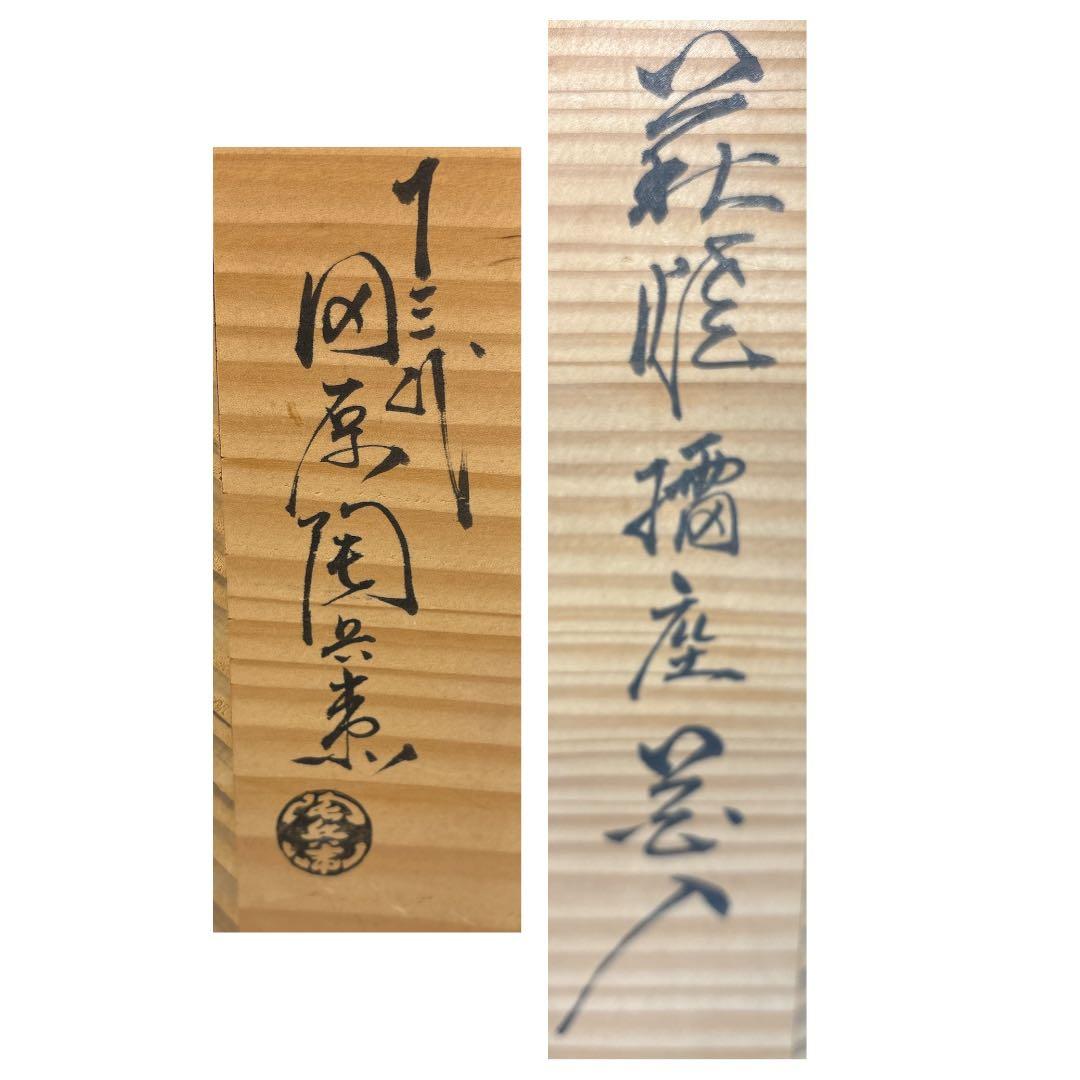 萩焼擂座花入
十三代
田原陶兵衛